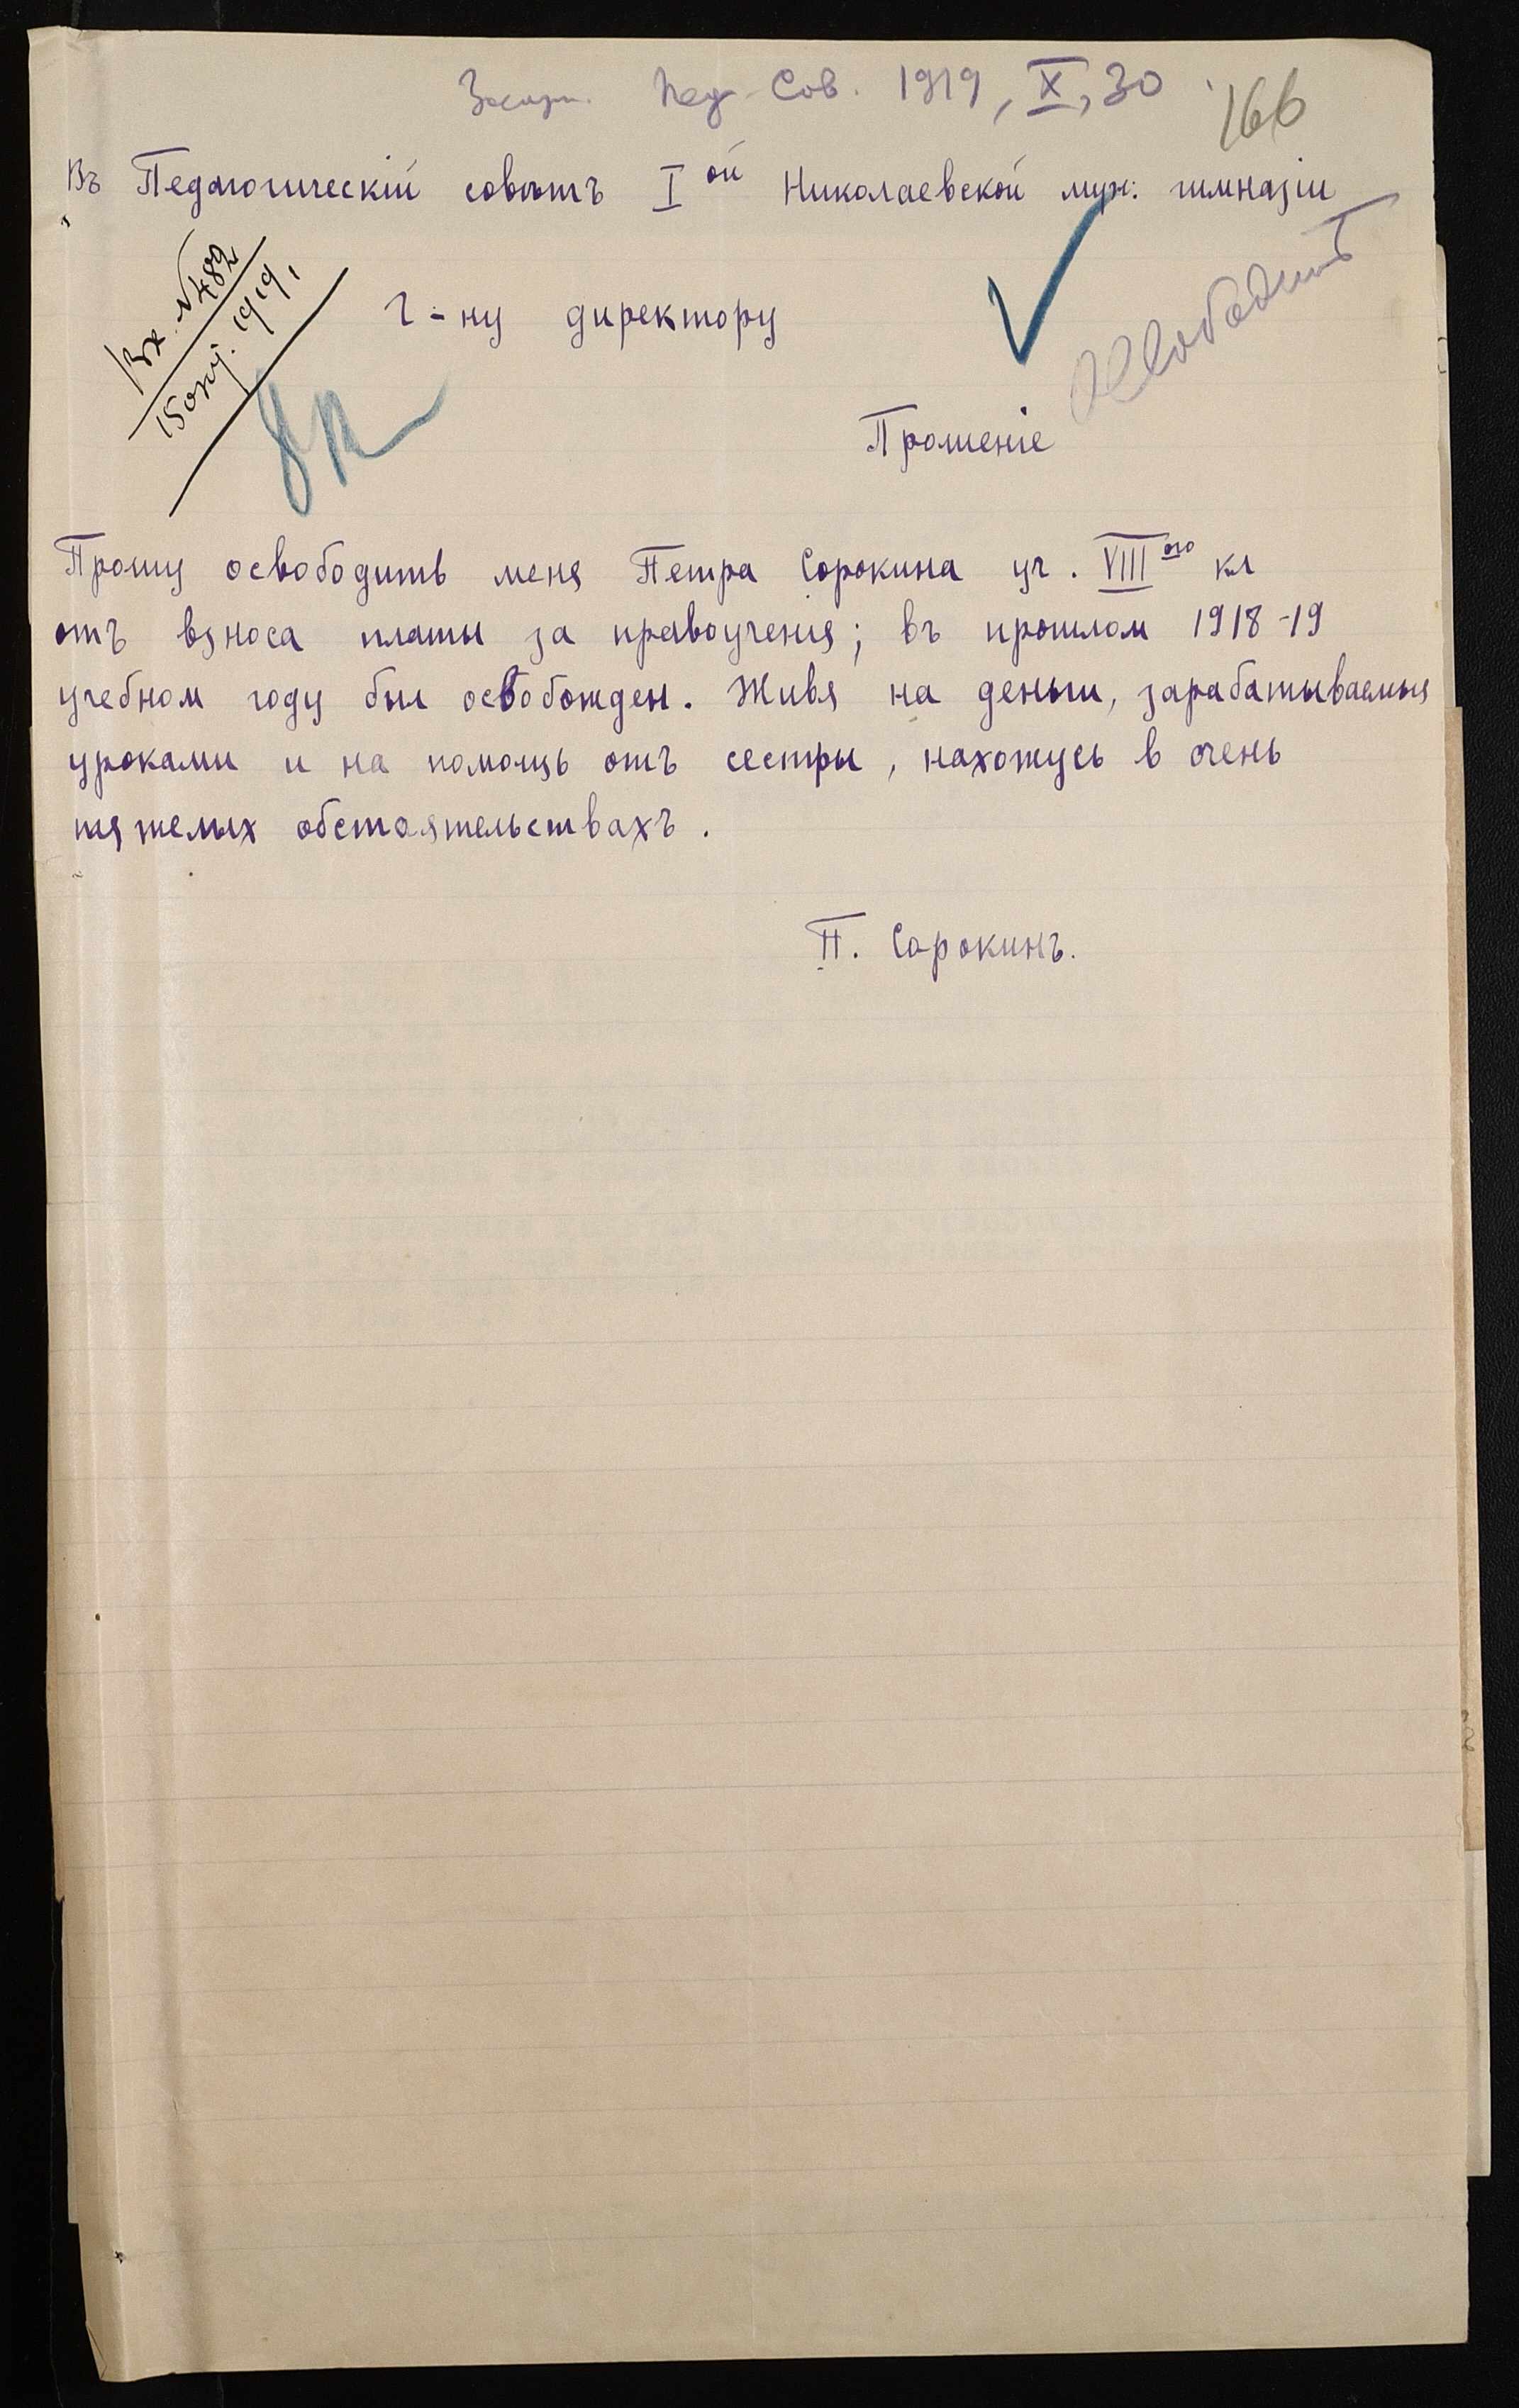 Пед. Сов. 1919, X, 30
166
Въ Педагогическій совѣтъ I ой Николаевской муж: гимназіи
Вх. №482
15 окт. 1919,
г-ну директору
Освободить
Прошеніе
Прошу освободить меня Петра Сорокина уч. VIII ого кл
отъ взноса платы за правоученія; въ прошлом 1918-19
учебном году был освобожден. Живя на деньги, зарабатываемыя
уроками и на помощь отъ сестры, нахожусь в очень
тяжелых обстоятельствахъ.
П. Сорокинъ.